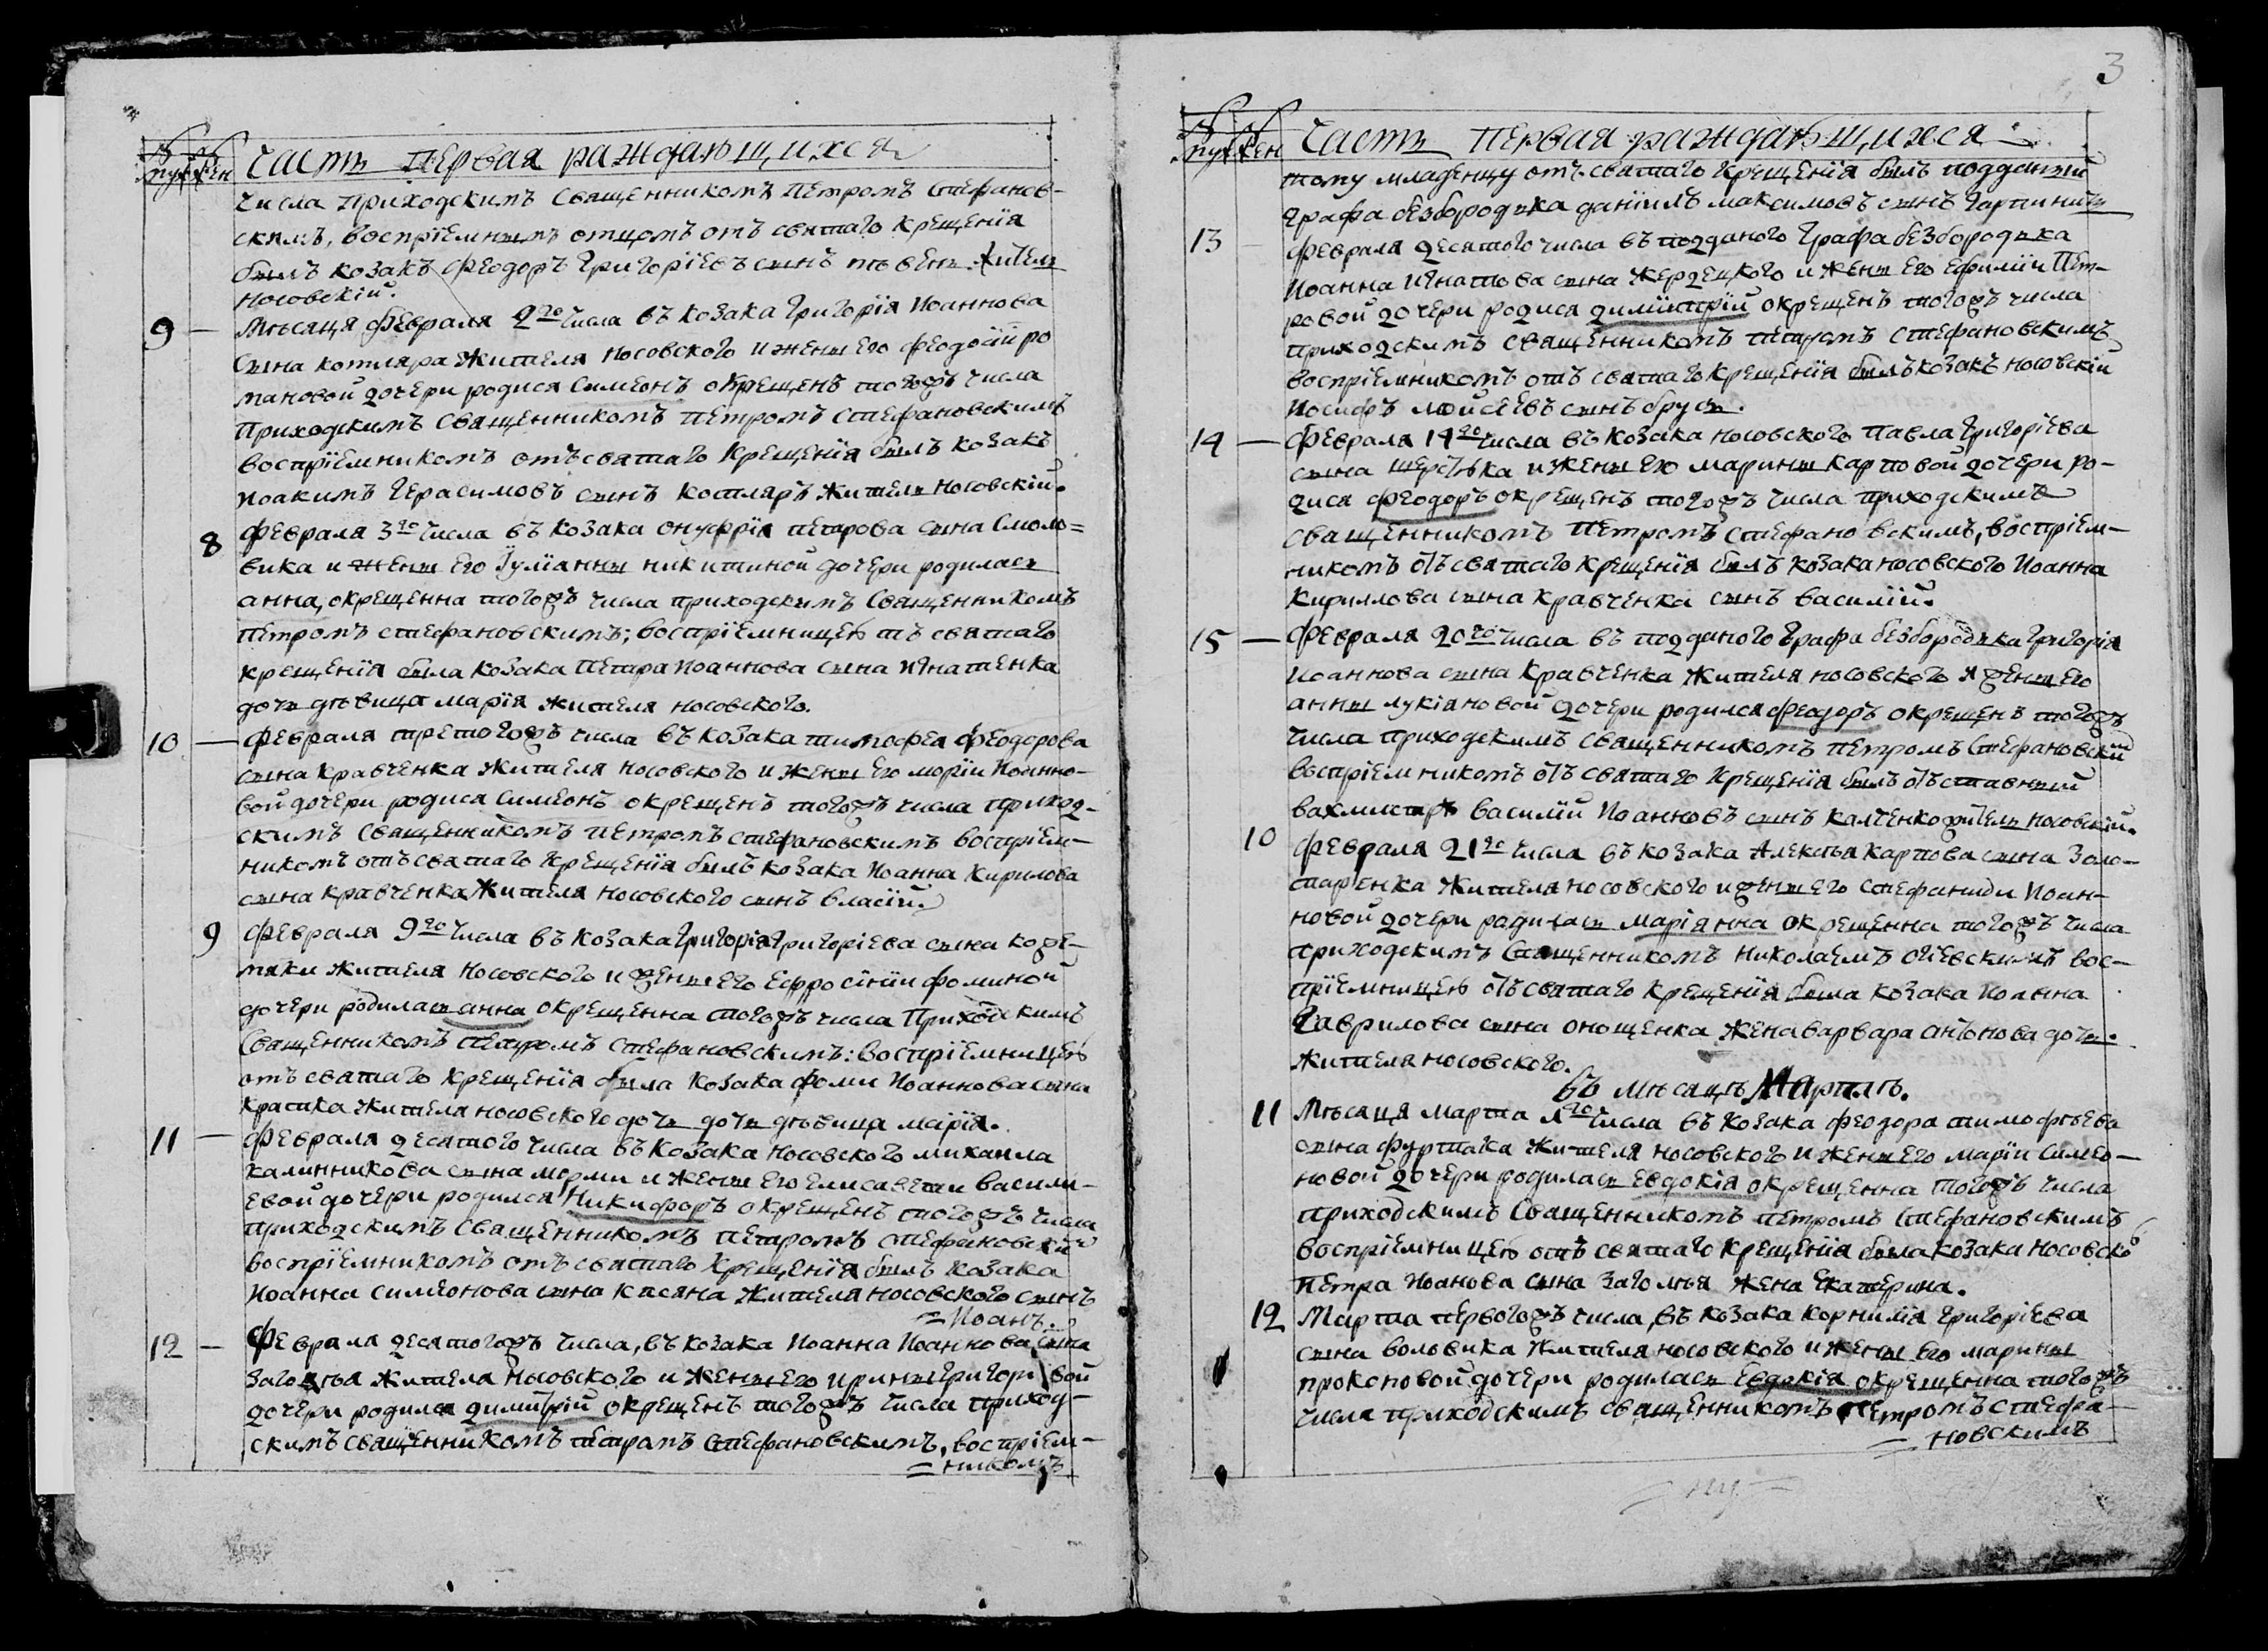 муж жен Часть первая раждавшихся
числа приходскимъ священникомъ Петромъ Стефанов-
скимъ, воспріемнымъ отцомъ отъ святаго крещенія
былъ козакъ Феодоръ Григоріевъ сынъ житель
носовскій.
9 — Мѣсяця февраля 2го числа въ козака Григорія Иоаннова
сына котляра жителя носовского и жены его Феодосіи ро
мановой дочери родися Симеонъ окрещенъ тогожъ числа
приходскимъ священникомъ Петромъ Стефановскимъ
воспріемникомъ отъ святаго крещенія былъ козакъ
Иоакимъ Герасимовъ сынъ котляръ житель носовскій.
8 февраля 3го числа въ козака Онуфрія Петрова сына Смоло=
вика и жены его Іуліанны никитиной дочери родилась
анна, окрещенна тогожъ числа приходскимъ священникомъ
Петромъ стефановскимъ; воспріемницею тъ святаго
крещенія была козака Петра Иоаннова сына Игнатенка
дочь дѣвица Марія жителя носовского.
10 — февраля третогожъ числа въ козака тимофея феодорова
сына кравченка жителя носовского и жены его моріи Иоанно-
вой дочери родися Симеонъ окрещенъ тогожъ числа приход-
скимъ священникомъ петромъ стефановскимъ воспріем-
никомъ отъ святаго крещенія былъ козака Иоанна Кирилова
сына кравченка жителя носовского сынъ власій.
9 февраля 9го числа въ козака Григорія Григоріева сына коже-
мяки жителя носовского и жены его Ефросініи фоминой
дочери родилась анна окрещенна тогожъ числа приходскимъ
священникомъ петромъ стефановскимъ: воспріемницею
отъ святаго крещенія была козака фоми Иоаннова сына
кратка жителя носовского дочь дочь дѣвица марія.
11 — февраля десятого числа въ козака носовского михаила
калинникова сына и жены его елисавети васили-
евой дочери родился Никифоръ окрещенъ тогожъ числа
приходскимъ священникомъ петромъ стефановским
воспріемникомъ отъ святаго крещенія былъ козака
Иоанна симеонова сына касяна жителя носовского сынъ
= Иоанъ.
12 — Февраля десятогожъ числа, въ козака Иоанна Иоаннова сына
заголѣя жителя носовского и жены его ирины григориевой
дочери родися димитрій окрещенъ тогожъ числа приход-
скимъ священникомъ петромъ Стефановскимъ, воспріем-
= никомъ
3
муж жен Часть первая раждавшихся
тому младенцу отъ святаго крещенія былъ подданый
графа безбородька даніилъ максимовъ сынъ
13 — февраля десятого числа въ подданого графа безбородька
Иоанна Игнатова сына жердецкого и жены его Ефиміи Пет-
ровой дочери родися димитрій окрещенъ тогожъ числа
приходскимъ священникомъ петромъ стефановскимъ
воспріемникомъ отъ святаго крещенія былъ козакъ носовскій
Иосифъ мойсеевъ сынъ брусъ.
14 — февраля 14го числа въ козака носовского павла Григоріева
сына и жены его марины карповой дочери ро-
дися феодоръ окрещенъ тогожъ числа приходскимъ
священникомъ петромъ стефановскимъ, воспріем-
никомъ отъ святаго крещенія былъ козака носовского Иоанна
кириллова сына кравченка сынъ василій.
15 — февраля 20го числа въ подданого графа безбородька Григорія
Иоаннова сына кравченка жителя носовского и жены его
анны лукіановой дочери родился феодоръ окрещенъ тогожъ
числа приходскимъ священникомъ петромъ стефановским
воспріемникомъ отъ святаго крещенія былъ отъставный
вахмистръ василій Иоанновъ сынъ калченко житель носовскій.
10 февраля 21го числа въ козака Алексѣя карпова сына золо-
таренка жителя носовского и жены его стефаниди Иоан-
новой дочери радилась маріянна окрещенна тогожъ числа
приходскимъ священникомъ николаемъ вос-
пріемницею отъ святаго крещенія была козака Иоанна
Гаврилова сына онощенка жена варвара дочь.
жителя носовского.
въ мѣсяцѣ Мартѣ.
11 Мѣсяця марта 1го числа въ козака феодора тимофѣева
сына фурмака жителя носовского и жены его маріи симео-
новой дочери родилась евдокія окрещенна тогожъ числа
приходскимъ священникомъ петромъ стефановскимъ
воспріемницею отъ святаго крещенія была козака носовско
петра Иоанова сына заголѣя жена екатерина.
12 Марта первогожъ числа, въ козака корнилія григоріева
сына воловика жителя носовского и жены его марины
прокоповой дочери родилась Евдокія окрещенна тогожъ
числа приходскимъ священникомъ петромъ стефа-
= новскимъ